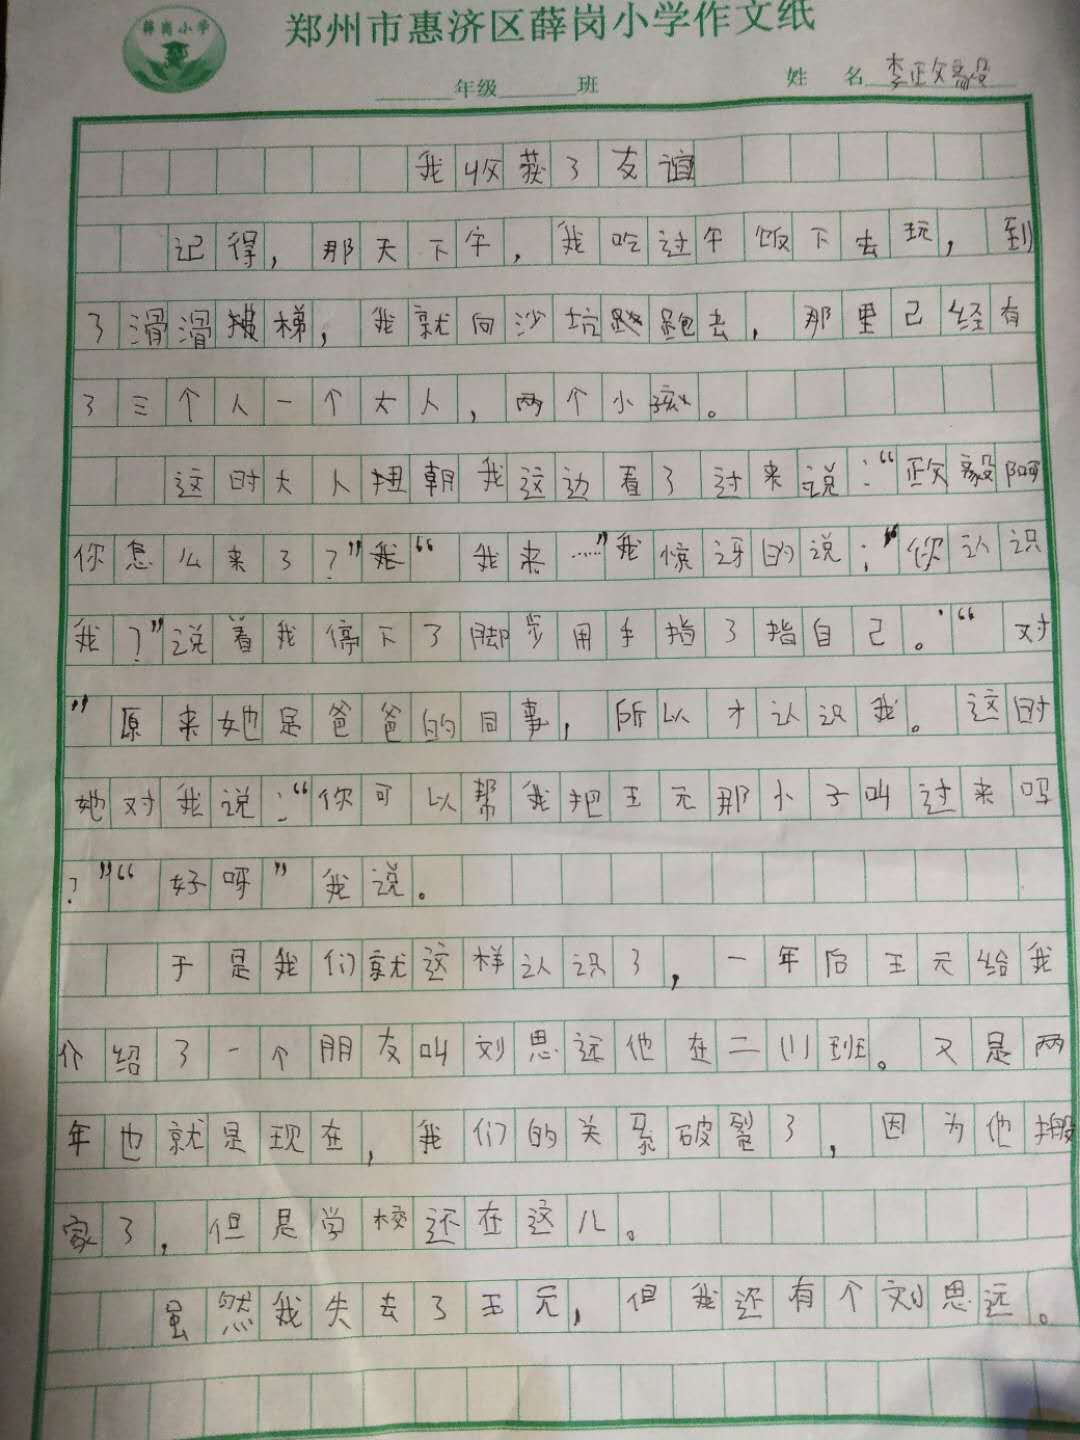 薛岗小学
郑州市惠济区薛岗小学作文纸
年级 班 姓 名 李政毅
我收获了友谊
记得，那天下午，我吃过午饭下去玩，到
了滑滑梯，我就向沙坑跑去，那里已经有
了三个人一个大人，两个小孩。
这时大人扭朝我这边看了过来说：“政毅阿
你怎么来了？”我“我来……”我惊讶的说：“你认识
我？”说着我停下了脚步用手指了指自己。“对
”原来她是爸爸的同事，所以才认识我。这时
她对我说：“你可以帮我把王元那小子叫过来吗
？”“好呀”我说。
于是我们就这样认识了，一年后王元给我
介绍了一个朋友叫刘思远他在二(1)班。又是两
年也就是现在，我们的关系破裂了，因为他搬
家了，但是学校还在这儿。
虽然我失去了王元，但我还有个刘思远。